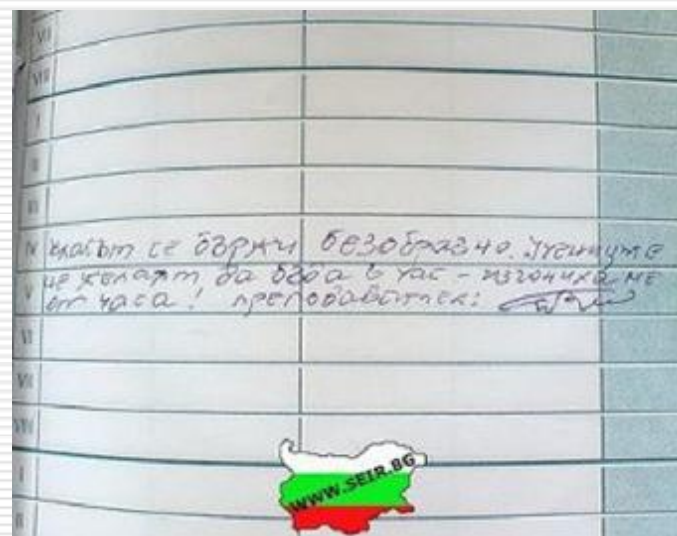 VII
VIII
I
II
III
IV Класът се държи безобразно. Учениците
не желаят да бъда в час - изгониха ме
V от часа! преподавател:
VI
VII
VIII
I
II
WWW.SEIR.BG